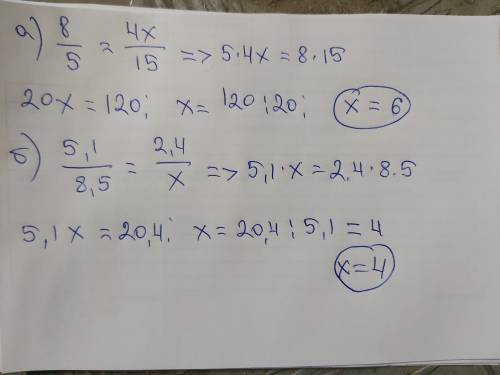 а) 8/5 = 4x/15 => 5·4x = 8·15
20x = 120; x = 120 : 20; x = 6
б) 5,1/8,5 = 2,4/x => 5,1·x = 2.4·8.5
5,1x = 20,4; x = 20,4 : 5,1 = 4
x = 4